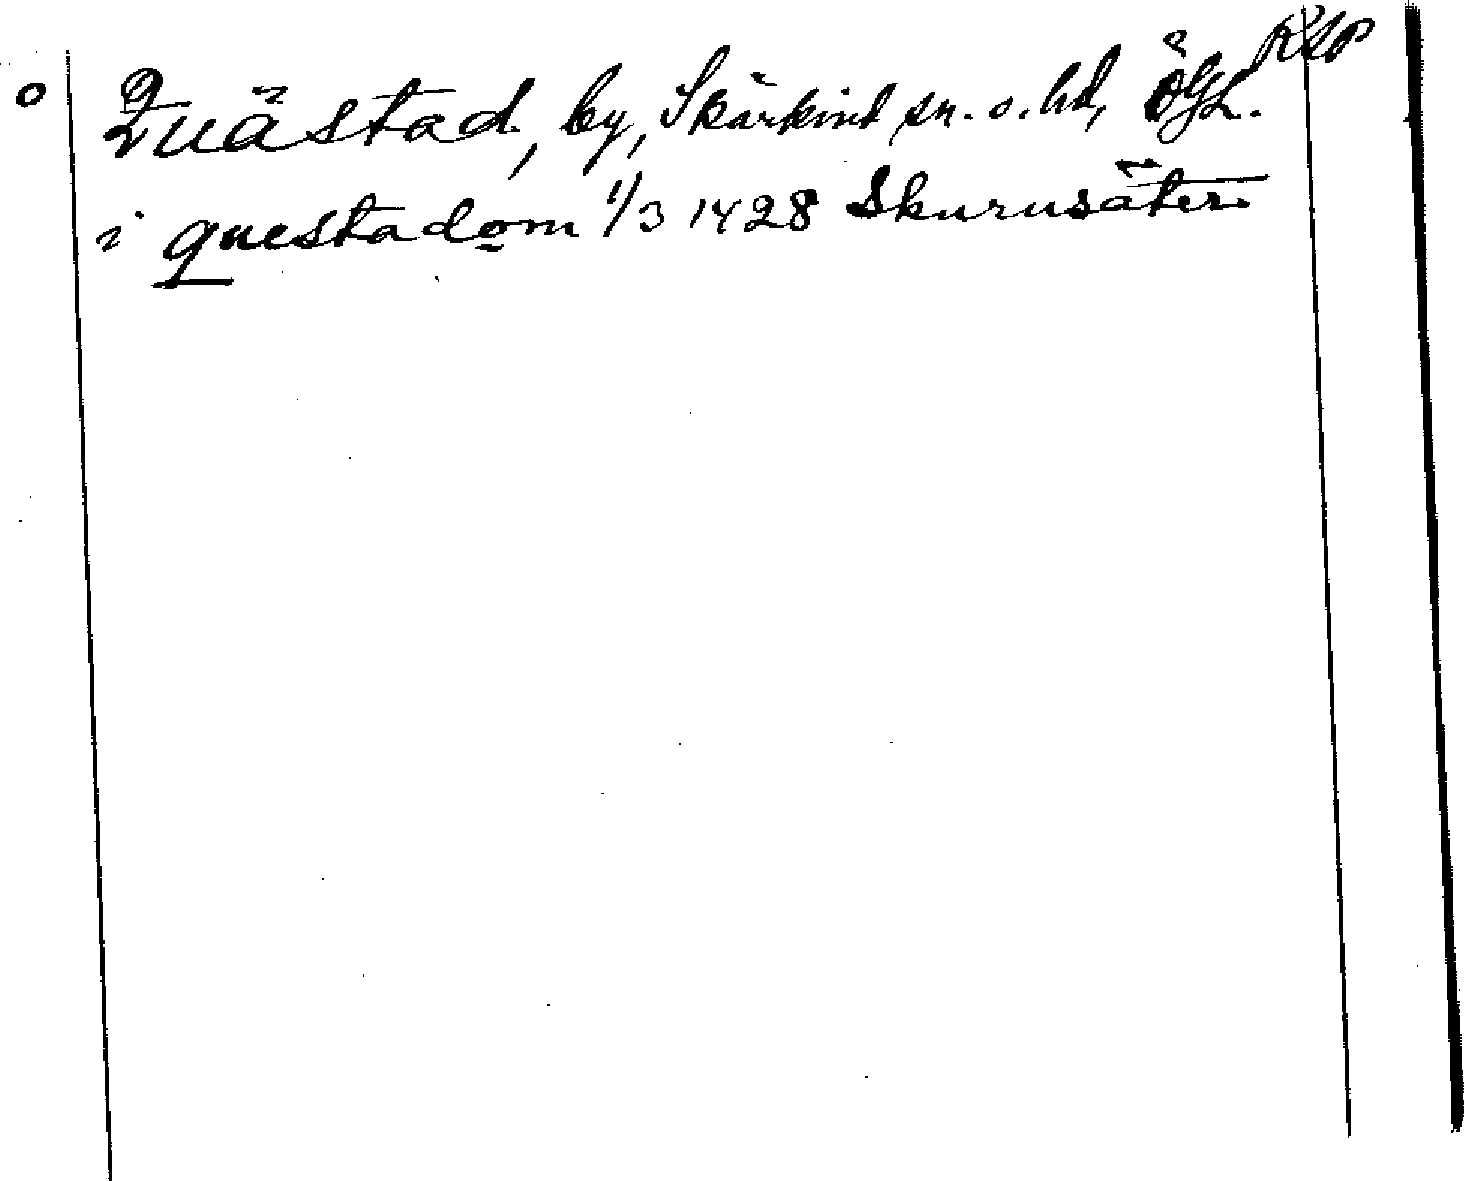 RAP
o Quästad, by, Skärkind sn. o. hd, Ögl.
i questadom 1/3 1428 Skurusäter